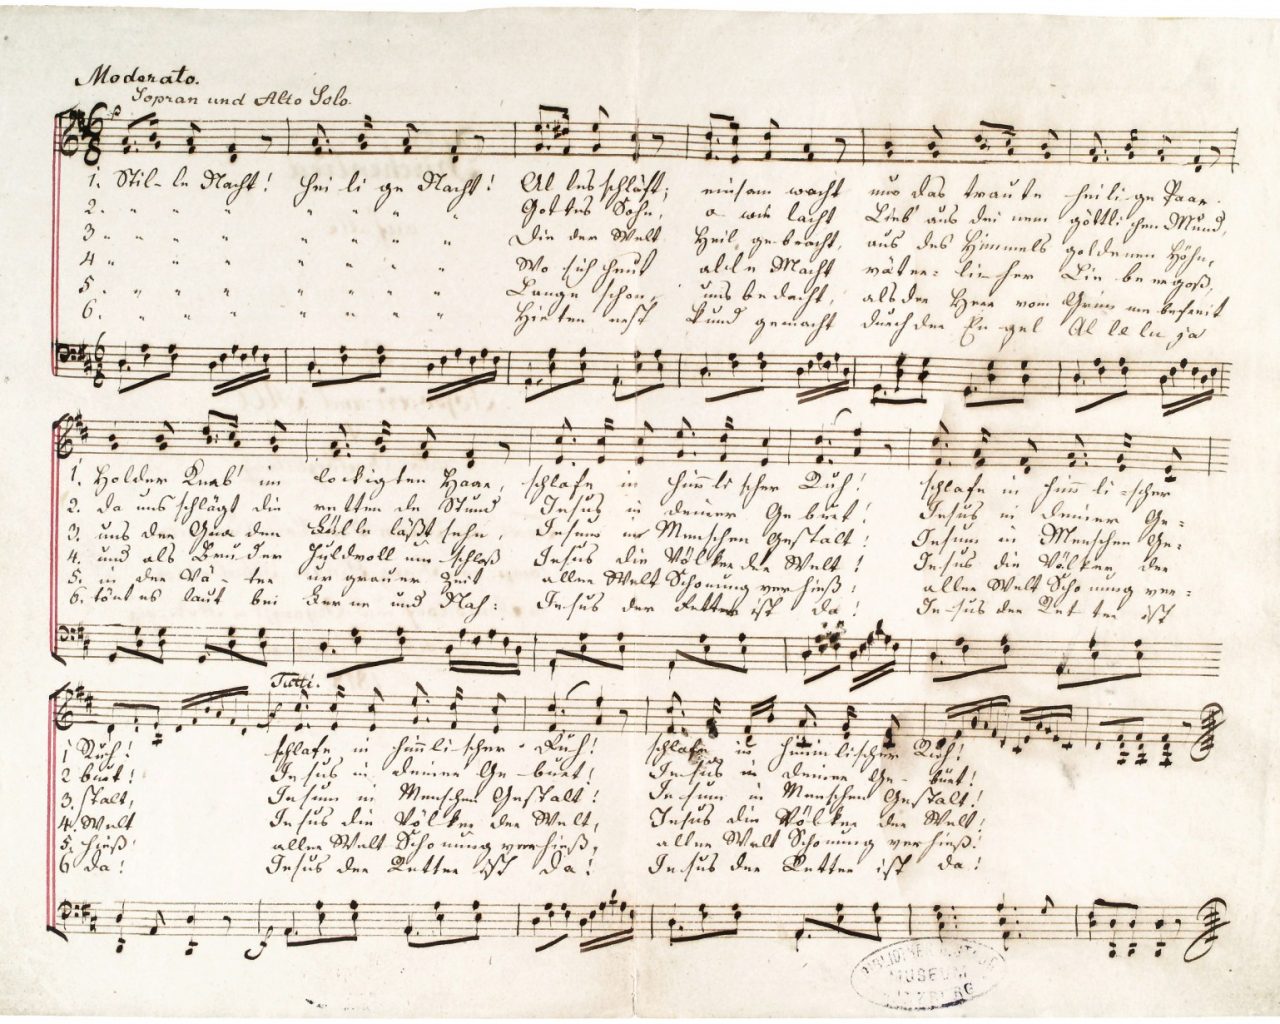 Moderato.
Sopran und Alto Solo.
1. Stil-le Nacht! Hei li ge Nacht! Al les schläft; einsam wacht nur das traute heili ge Paar.
2. " " " " " " " Gottes Sohn, o wie lacht Lieb' aus dei nem göttli chen Mund,
3 " " " " " " " " Die der Welt Heil gebracht, aus des Himmels goldenen Höhn,
4 " " " " " " " " Wo sich heut alle Macht väter- li-cher Lie be ergoß,
5. " " " " " " " " Lange schon, uns bedacht, als der Herr vom Grim me befreit
6. " " " " " " " " Hirten erst kund gemacht durch der En-gel Al le lu, ja
1. Holder Knab' im lockigten Haar, schlafe in himli scher Ruh! schlafe in him li-scher
2. da uns schlägt die retten de Stund Jesus in deiner Ge burt! Jesus in deiner Ge-
3. uns der Gna den Fülle läßt sehn, Jesum in Menschen Gestalt! Jesum in Menschen Ge-
4. und als Bruder Huldvoll um-schloß Jesus die Völker der Welt! Je-sus die Völker der
5. in der Vä-ter ur grauer Zeit aller Welt Schonung verhieß! aller Welt Scho nung ver-
6. tönt es laut bei Ferne und Nah: Jesus der Retter ist da! Je-sus der Ret ter ist
Tutti.
1 Ruh! schlafe in himlischer Ruh! schlafe in himmlischer Ruh!
2 burt! Je sus in deiner Ge-burt! Je-sus in deiner Ge-burt!
3. stalt, Je sum in Menschen Gestalt! Je sum in Menschen Gestalt!
4. Welt Je sus die Völker der Welt, Jesus die Völker der Welt!
5. hieß! aller Welt Schonung verhieß, aller Welt Schonung verhieß!
6 da! Jesus der Retter ist da! Je-sus der Retter ist da!
MUSEUM